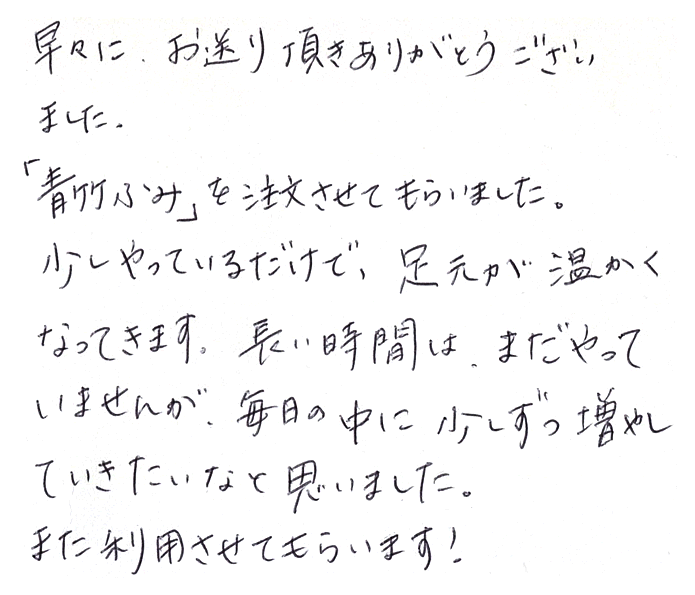 早々に、お送り頂きありがとうござい
ました。
「青竹ふみ」を注文させてもらいました。
少しやっているだけで、足元が温かく
なってきます。長い時間は、まだやって
いませんが、毎日の中に少しずつ増やし
ていきたいなと思いました。
また利用させてもらいます!